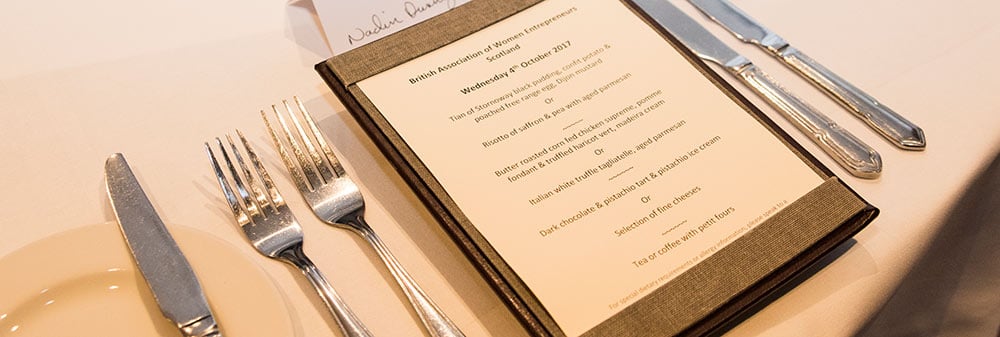 Nadin
British Association of Women Entrepreneurs
Scotland
Wednesday 4th October 2017
Tian of Stornoway black pudding, confit potato &
poached free range egg, Dijon mustard
Or
Risotto of saffron & pea with aged parmesan
~~~~
Butter roasted corn fed chicken supreme, pomme
fondant & truffled haricot vert, madeira cream
Or
Italian white truffle tagliatelle, aged parmesan
~~~~~
Dark chocolate & pistachio tart & pistachio ice cream
Or
Selection of fine cheeses
~~~~~
Tea or coffee with petit fours
For special dietary requirements or allergy information, please speak to a